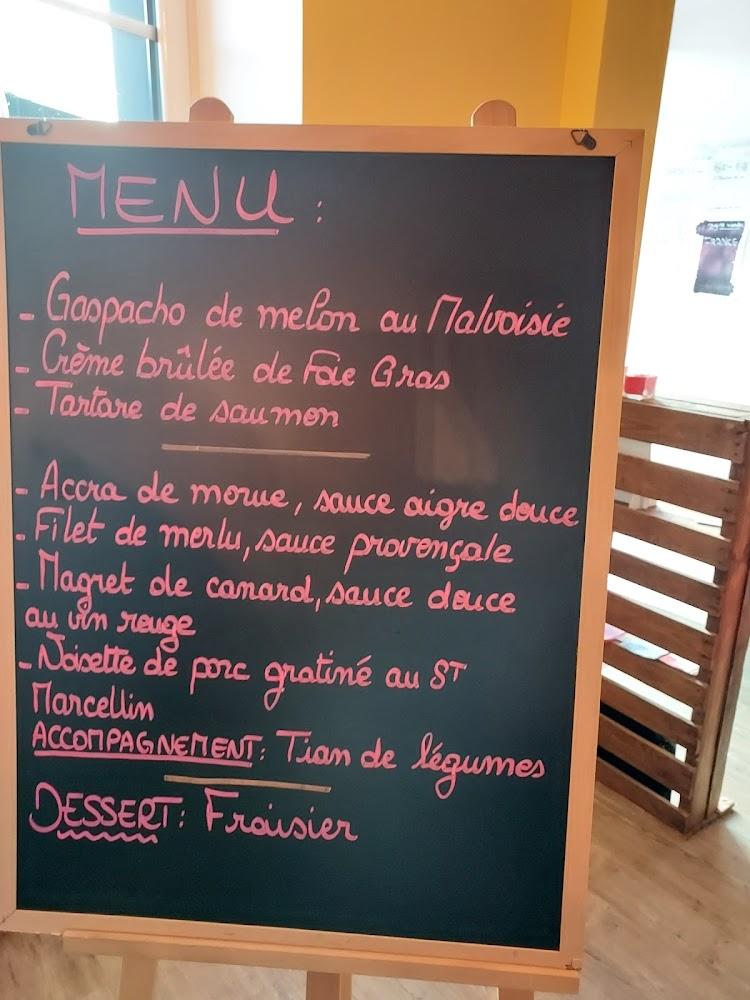 MENU :
- Gaspacho de melon au Malvoisie
- Crème brûlée de Foie Gras
- Tartare de saumon
- Accra de morue, sauce aigre douce
- Filet de merlu, sauce provençale
- Magret de canard, sauce douce
au vin rouge
- Noisette de porc gratiné au ST
Marcellin
ACCOMPAGNEMENT : Tian de légumes
DESSERT : Fraisier
FRANCE